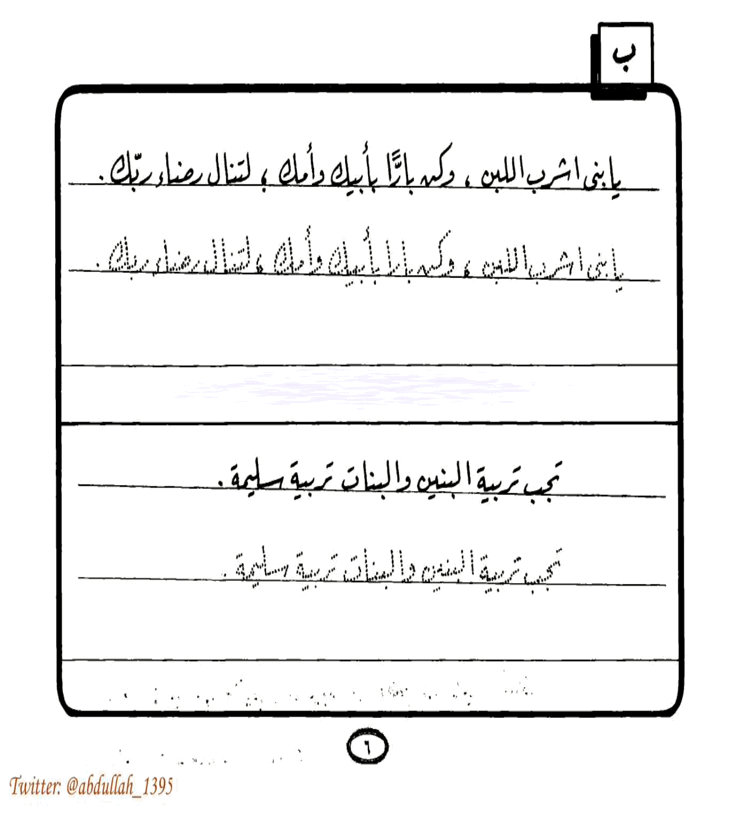 ب
يا بني اشرب اللبن ، وكن بارًّا بأبيك وأمك ؛ لتنال رضاء ربّك .
يا بني اشرب اللبن ، وكن بارا بأبيك وأمك ، لتنال رضاء ربك .
تجب تربية البنين والبنات تربية سليمة .
تجب تربية البنين والبنات تربية سليمة .
٦
Twitter: @abdullah_1395